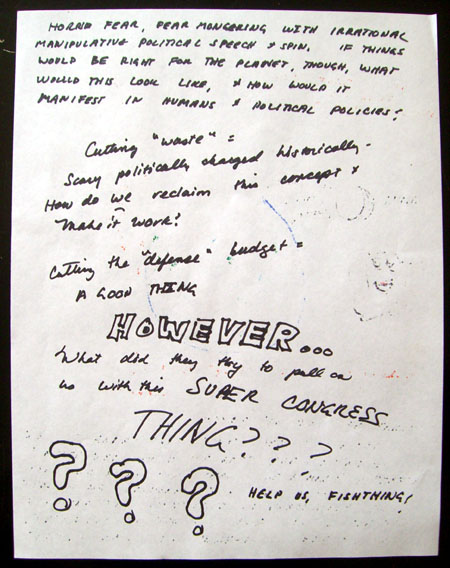 HORRID FEAR, FEAR MONGERING WITH IRRATIONAL
MANIPULATIVE POLITICAL SPEECH & SPIN. IF THINGS
WOULD BE RIGHT FOR THE PLANET, THOUGH, WHAT
WOULD THIS LOOK LIKE, & HOW WOULD IT
MANIFEST IN HUMANS & POLITICAL POLICIES?
Cutting "waste" =
Scary politically charged historically -
How do we reclaim this concept &
make it work?
Cutting the "defense" budget =
A GOOD THING
HOWEVER...
What did they try to pull on
us with this SUPER CONGRESS
THING???
? ? ?
HELP US, FISHTHING!